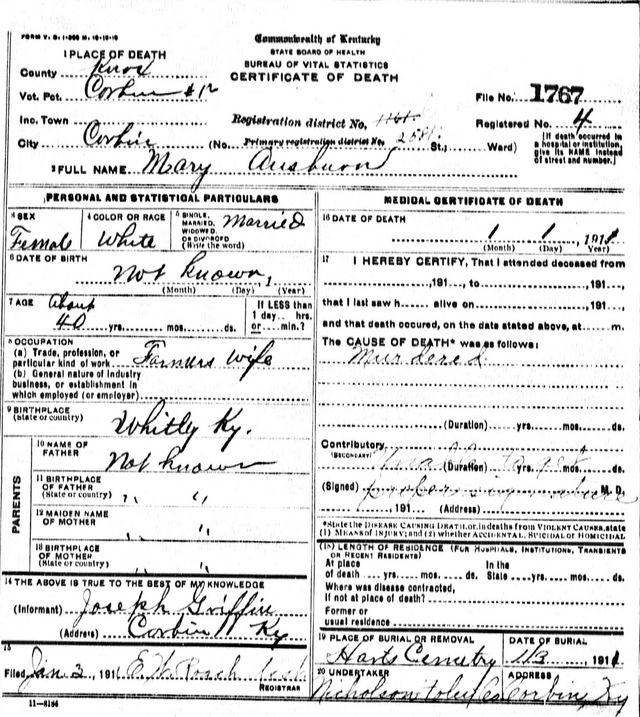 FORM V. S. 1-
Commonwealth of Kentucky
STATE BOARD OF HEALTH
BUREAU OF VITAL STATISTICS
CERTIFICATE OF DEATH
1 PLACE OF DEATH
County Knox
Vot. Pct. Corbin #12
Inc. Town
City Corbin (No. St.; Ward)
Registration district No. 1161
Primary registration district No. 2581
File No. 1767
Registered No. 4
[If death occurred in a hospital or institution, give its NAME instead of street and number.]
2 FULL NAME Mary Ausburn
PERSONAL AND STATISTICAL PARTICULARS
3 SEX
Female
4 COLOR OR RACE
White
5 SINGLE, MARRIED, WIDOWED, OR DIVORCED (Write the word)
Married
6 DATE OF BIRTH
Not known, 1
(Month) (Day) (Year)
7 AGE About
40 yrs. mos. ds.
If LESS than 1 day hrs. or min.?
8 OCCUPATION
(a) Trade, profession, or particular kind of work Farmers wife
(b) General nature of industry business, or establishment in which employed (or employer)
9 BIRTHPLACE
(State or country) Whitly Ky.
PARENTS
10 NAME OF FATHER Not known
11 BIRTHPLACE OF FATHER (State or country) " "
12 MAIDEN NAME OF MOTHER " "
13 BIRTHPLACE OF MOTHER (State or country) " "
14 THE ABOVE IS TRUE TO THE BEST OF MY KNOWLEDGE
(Informant) Joseph Griffin
(Address) Corbin Ky
15
Filed Jan 3, 191 E. W. Roach
REGISTRAR
11-8184
MEDICAL CERTIFICATE OF DEATH
16 DATE OF DEATH
1 1 1911
(Month) (Day) (Year)
17 I HEREBY CERTIFY, That I attended deceased from
, 191 , to , 191 ,
that I last saw h alive on , 191 ,
and that death occured, on the date stated above, at m.
The CAUSE OF DEATH* was as follows:
Murdered
(Duration) yrs. mos. ds.
Contributory
(SECONDARY)
(Duration) yrs. mos. ds.
(Signed) M.D.
, 191 (Address)
*State the DISEASE CAUSING DEATH, or, in deaths from VIOLENT CAUSES, state (1) MEANS OF INJURY; and (2) whether ACCIDENTAL, SUICIDAL or HOMICIDAL
(18) LENGTH OF RESIDENCE (FOR HOSPITALS, INSTITUTIONS, TRANSIENTS OR RECENT RESIDENTS)
At place of death yrs. mos. ds. In the State yrs. mos. ds.
Where was disease contracted, If not at place of death?
Former or usual residence
19 PLACE OF BURIAL OR REMOVAL
Harts Cemetry
DATE OF BURIAL
1/3, 1911
20 UNDERTAKER
Nicholson
ADDRESS
Corbin, Ky